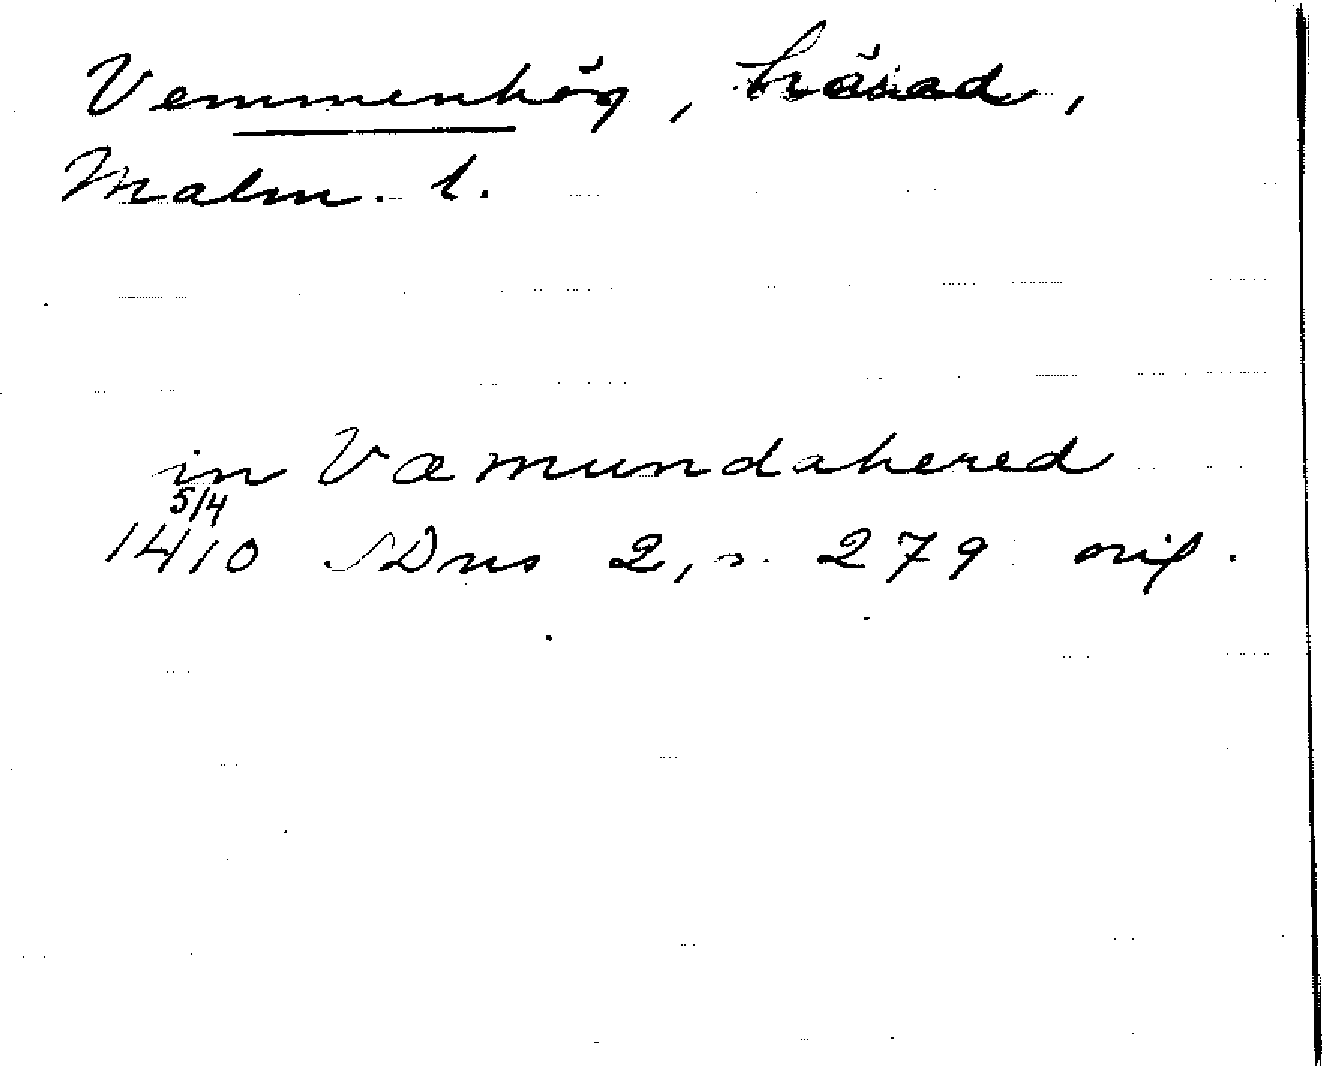 Vemmenhög, härad,
Malm. l.
in Væmundahered
5/4
1410 SDns 2, s. 279 orig.